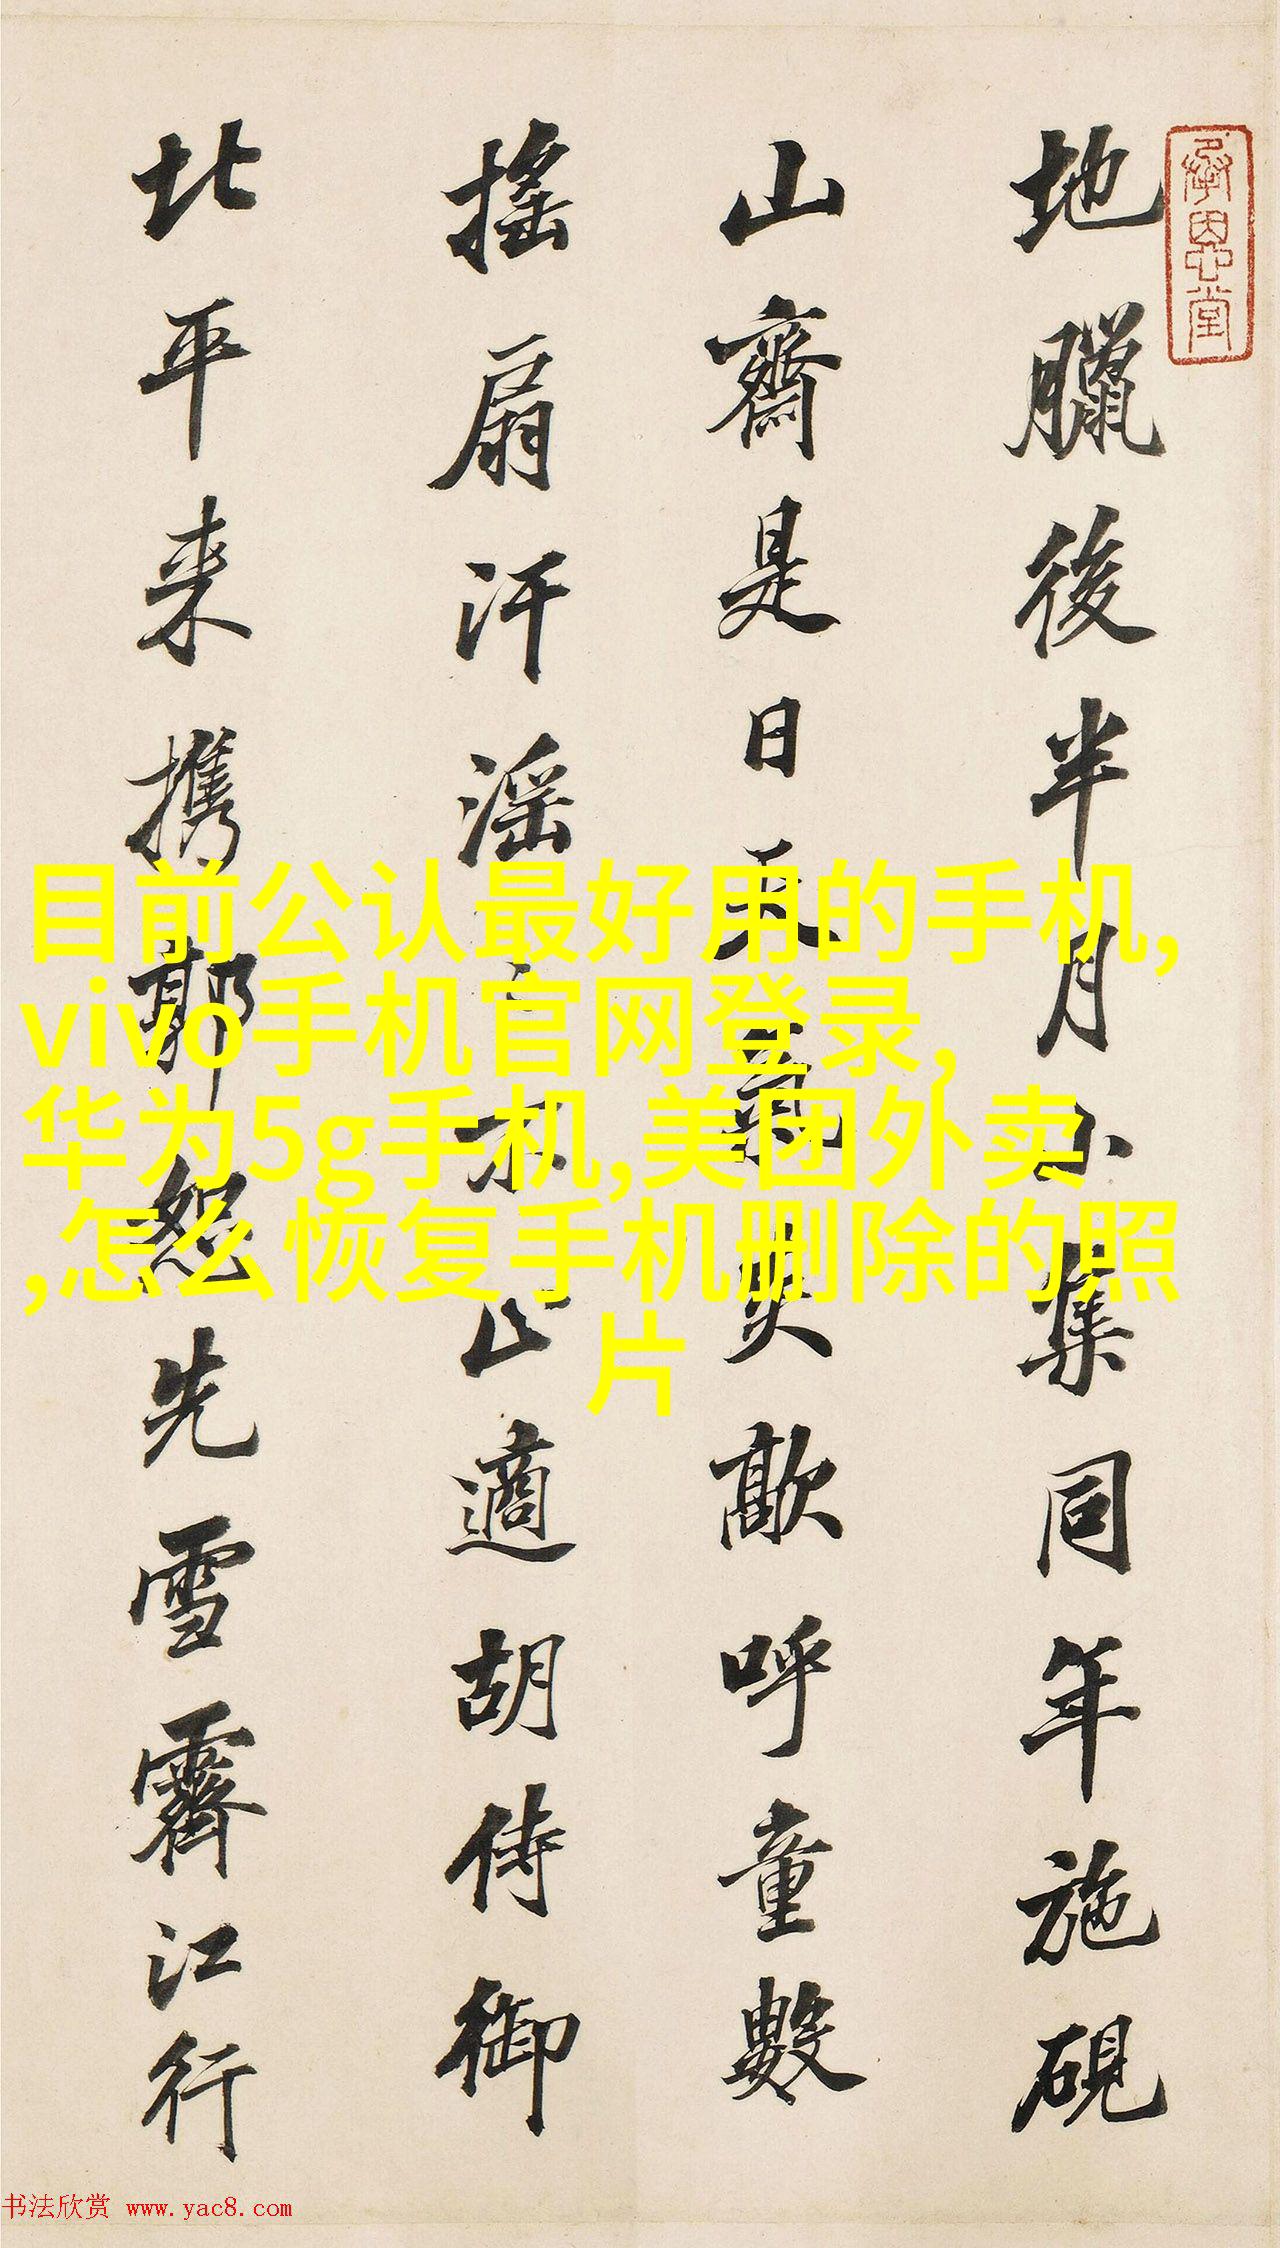 承恩堂
地臘後半月小集同年施硯
山齋是日天氣炎歊呼童數
搖扇汗滛不止適胡侍御
北平来携郭恕先雪霽江行
目前公认最好用的手机,
vivo手机官网登录,
华为5g手机,美团外卖
,怎么恢复手机删除的照
片
书法欣赏 www.yac8.com